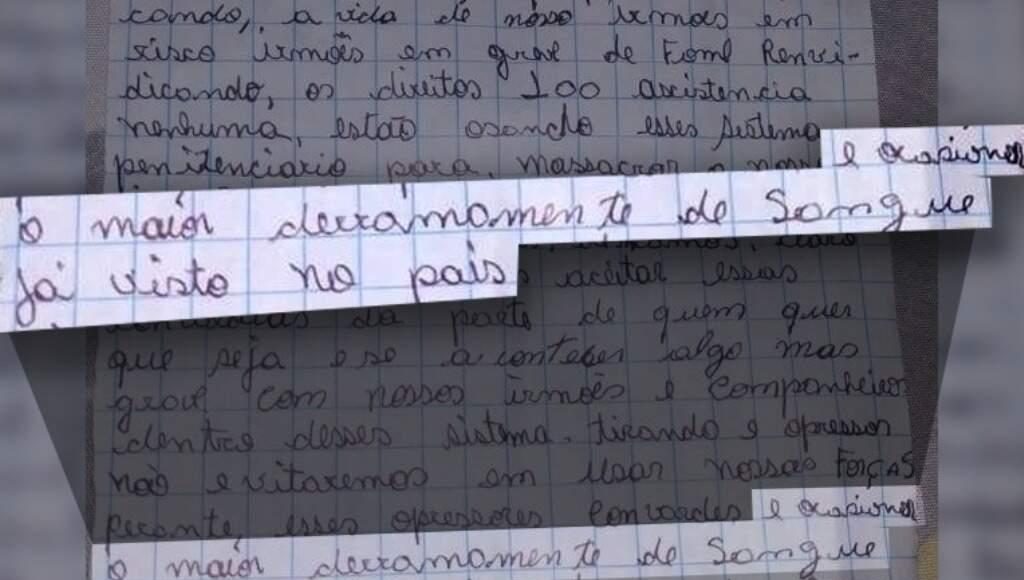 cando, a vida de nosso irmãos em
risco irmãos em greve de Fome Renvi-
dicando, os direitos 100 assistencia
nenhuma, estão osando esses sistema
penitenciario para, massacrar
e ocasiones
o maior derramamente de Songue
já visto no pais
aceitar essas
da parte de quem quer
que seja e se a conteser algo mas
grave com nossos irmões e Companheiros
dentro desses sistema. tirando e opressor
não evitaremos em usar nossas FORÇAS
perante, esses opressores Convardes e ocasiones
o maior derramamente de Songue